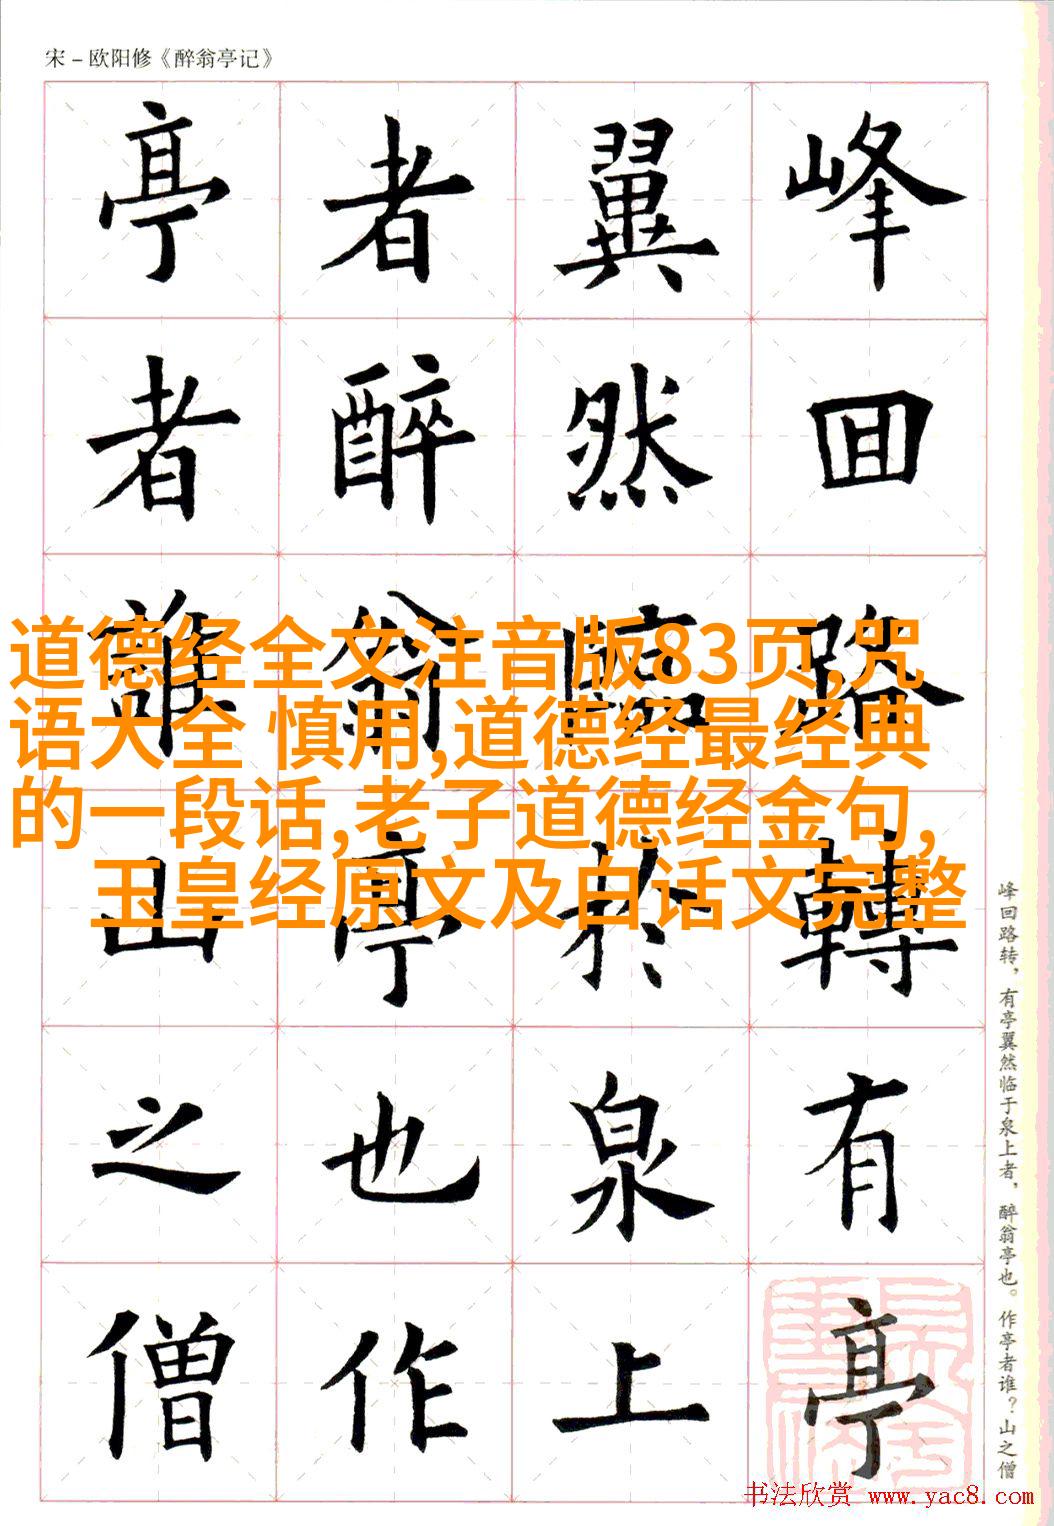 宋－欧阳修《醉翁亭记》
峰囬路轉有亭
翼然臨於泉上
者醉翁亭也作
亭者誰山之僧
道德经全文注音版83页,咒
语大全 慎用,道德经最经典
的一段话,老子道德经金句,
玉皇经原文及白话文完整
峰回路转，有亭翼然临于泉上者，醉翁亭也。作亭者谁？山之僧
书法欣赏 www.yac8.com